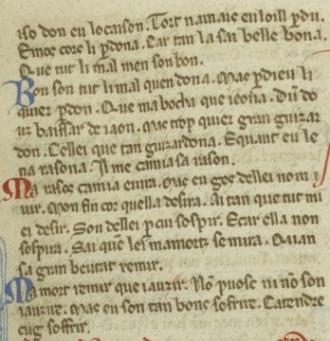 iso don eu locaison. Tort namaie eu loill pdu.
Emos cors li pdona. Car tan la sai belle bona.
Que tut li mal men son bon.
Bon son tut li mal quen dona. Mas pdieu li
quier pdon. Que ma bocha que ieona. Dun do
uz baissar de iaon. Mas trop quier gran guizar
don. Cellei que tan guizardona. Equant eu le
na rasona. Il me camia sa rason.
Ma rasos camia euira. Mas eu ges dellei nom i
uir. Mon fin cor quella desira. Ai tan que tut mi
ei desir. Son dellei p cui sospir. Ecar ella non
sospira. Sai quen les ma mortz se mira. Quan
sa gran beutat remir.
Ma mort remir que iauzir. Nō puosc ni nō son
iauzire. Mas eu son tan bons sofrire. Catendre
cug soffrir.